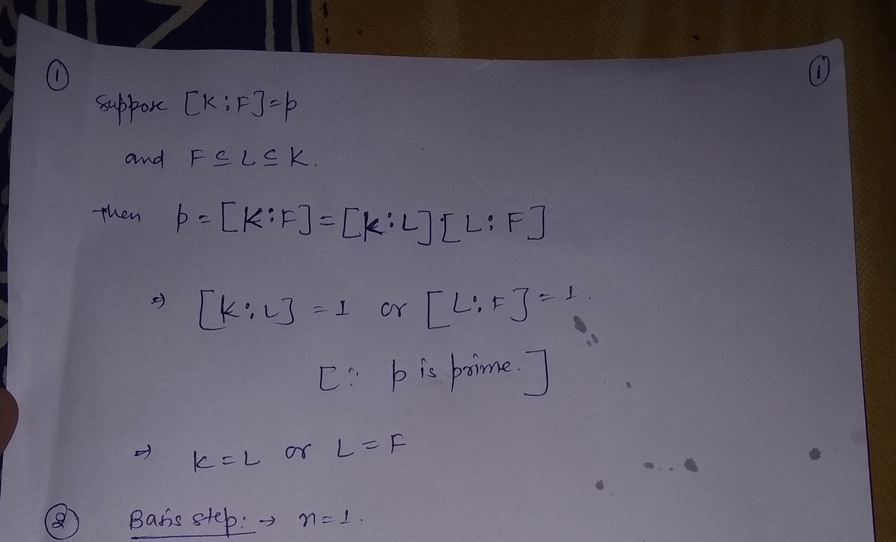 ① ①
Suppose [K:F]=p
and F⊆L⊆K.
Then p=[K:F]=[K:L][L:F]
⇒ [K:L]=1 or [L:F]=1.
[∵ p is prime.]
⇒ K=L or L=F
② Basis step: → n=1.